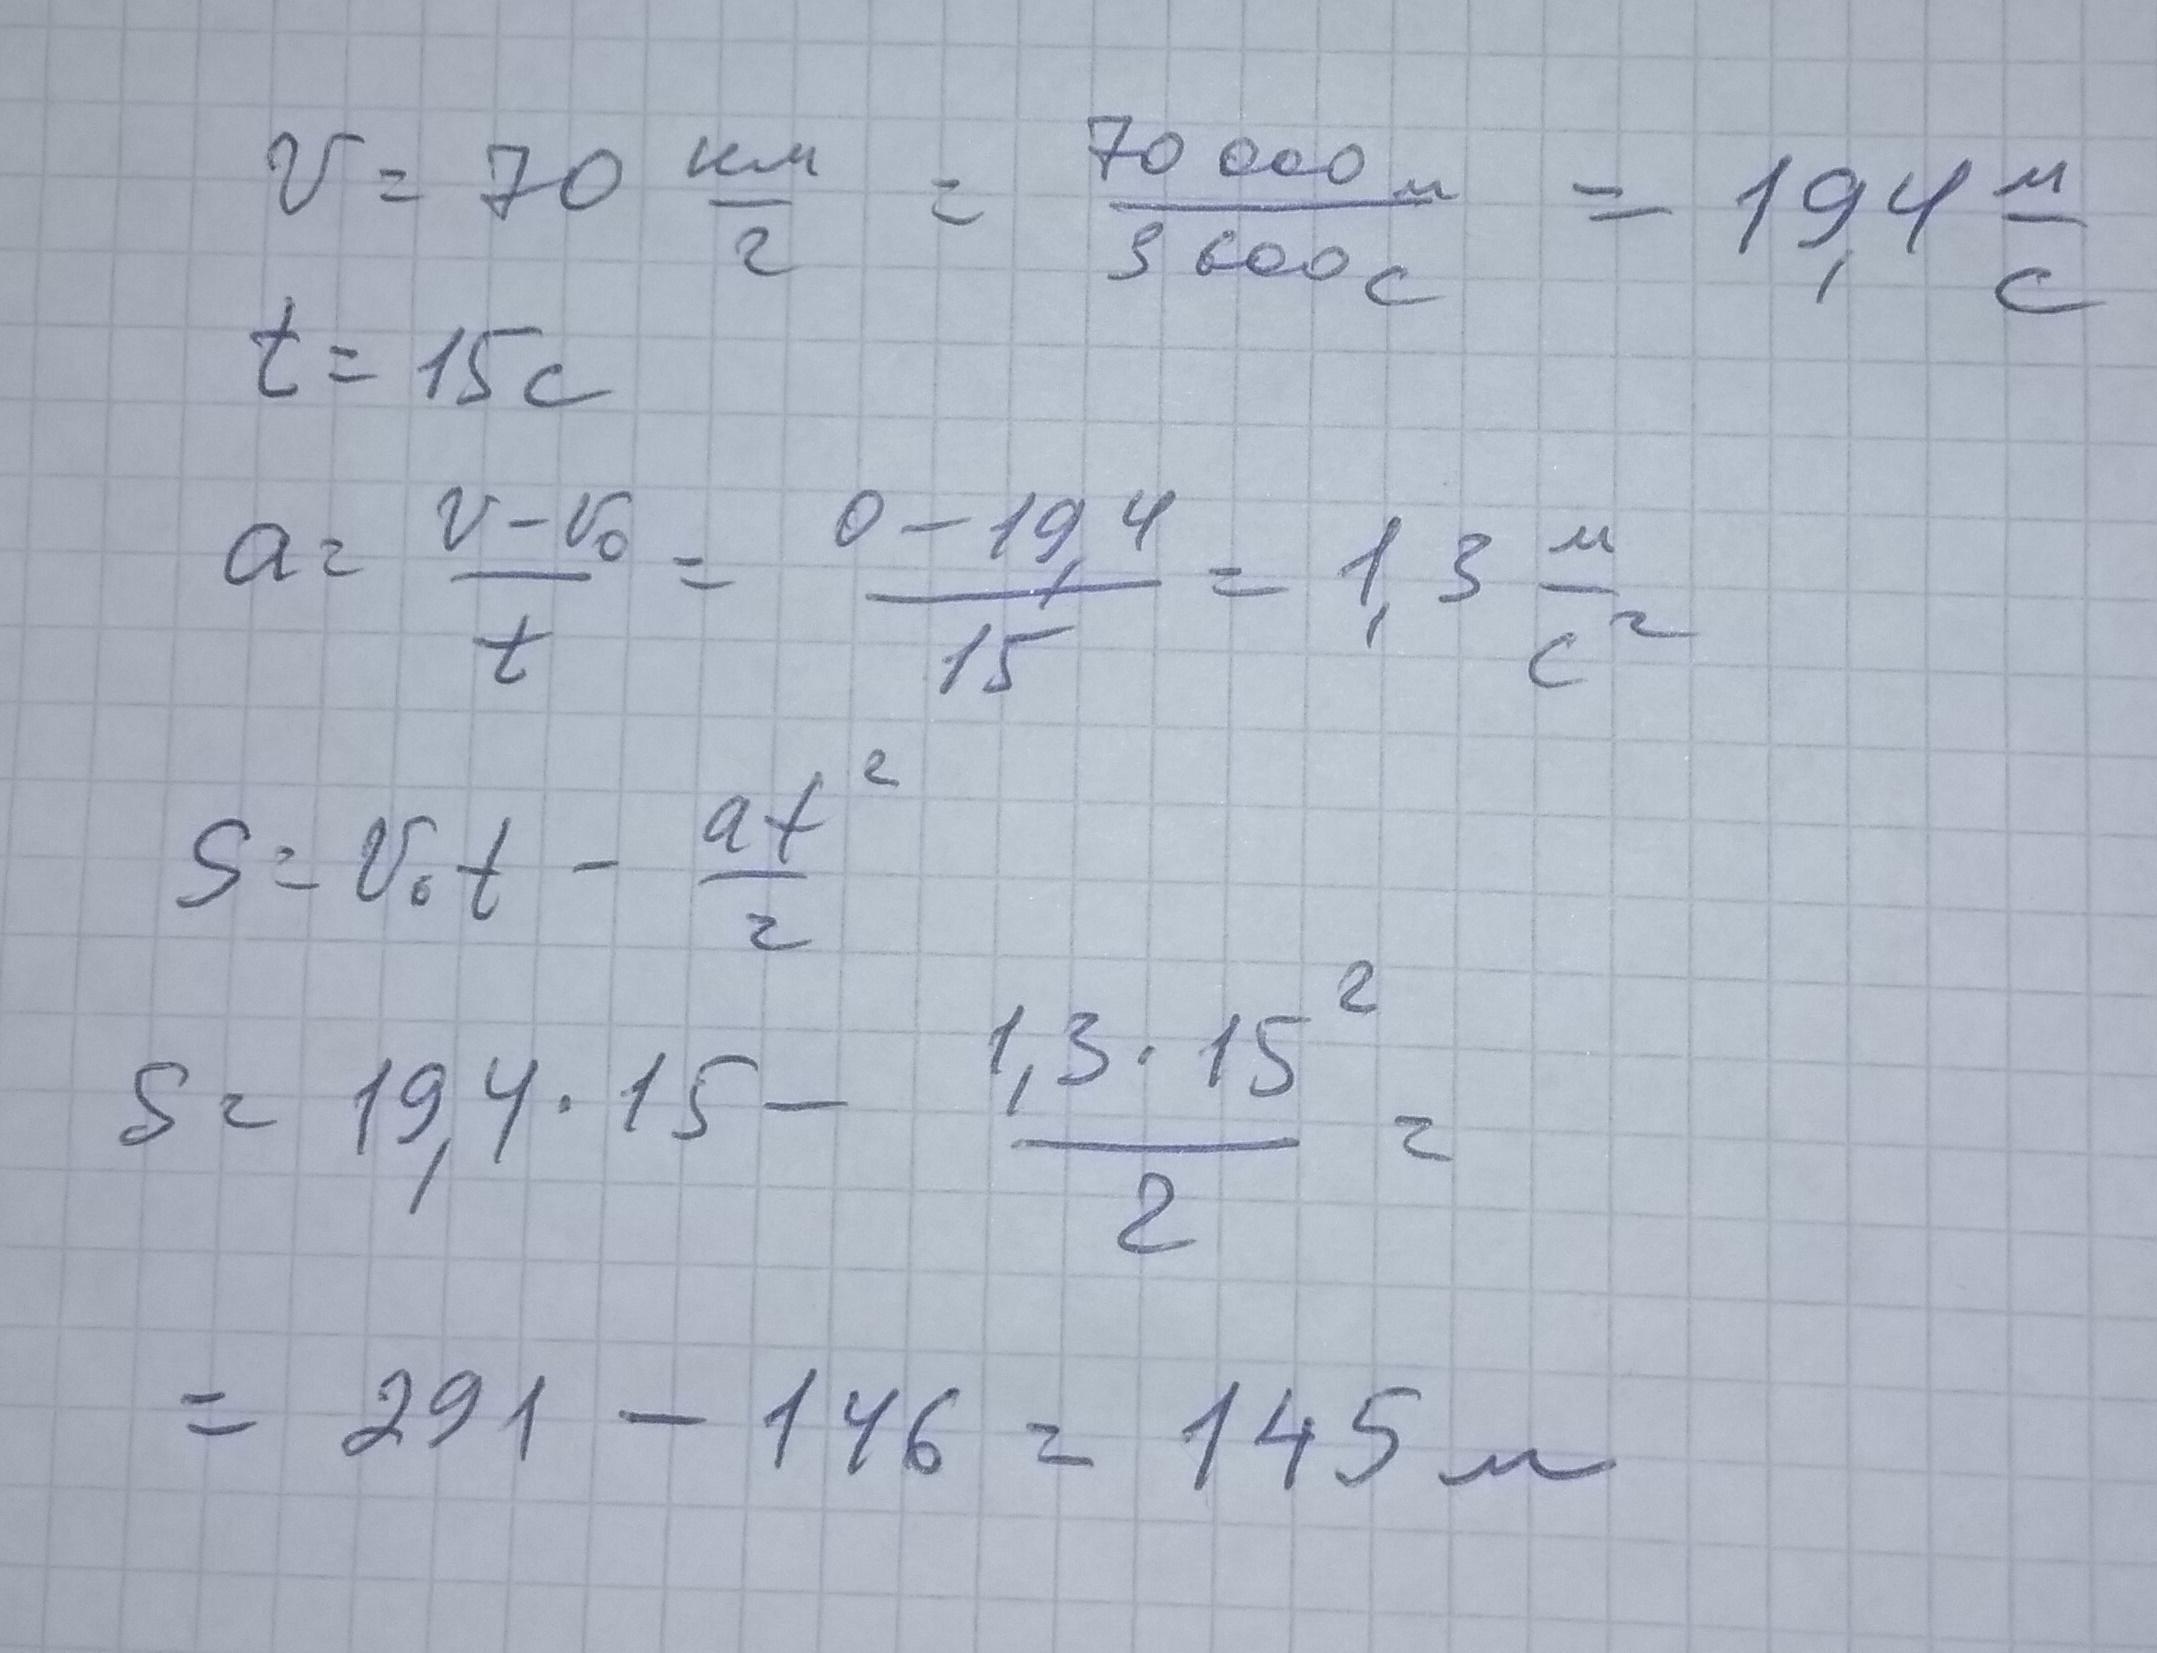 v = 70 км/г = 70 000 м/3 600 с = 19,4 м/с
t = 15 с
a = (v - v₀)/t = (0 - 19,4)/15 = 1,3 м/с²
S = v₀t - at²/2
S = 19,4 · 15 - 1,3 · 15²/2 =
= 291 - 146 = 145 м